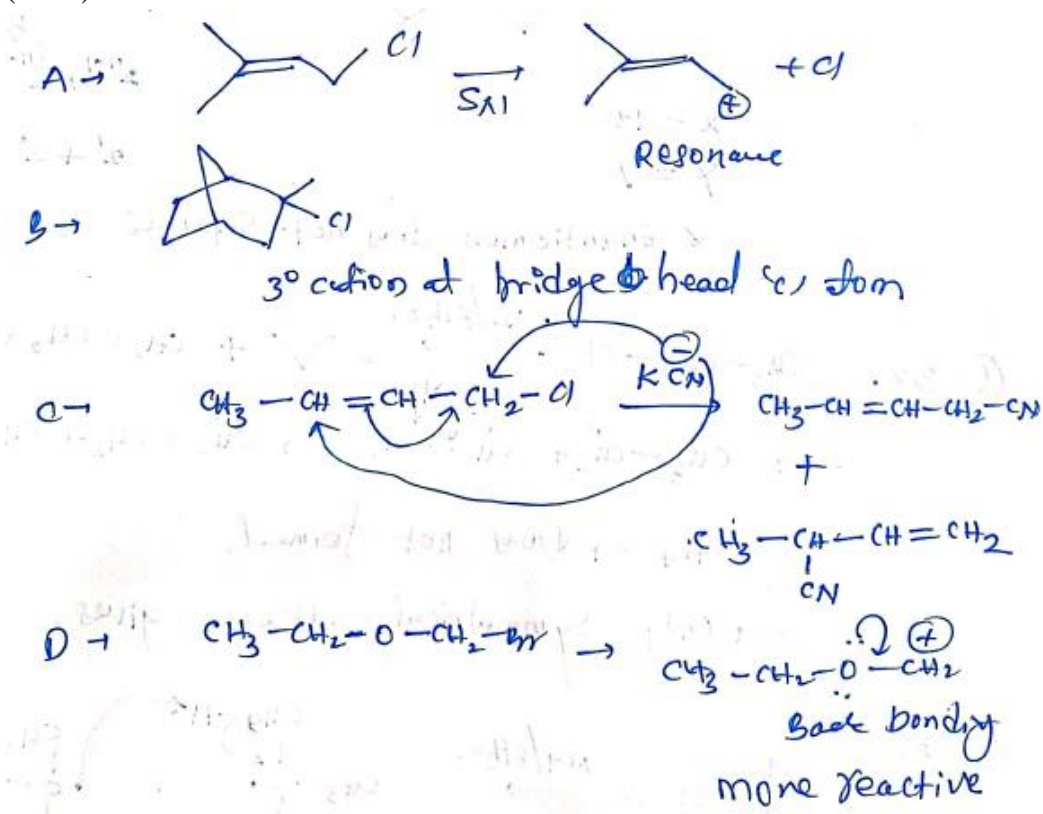 A → Cl SN1 ⊕ + Cl
Resonance
B → Cl
3° cation at bridge head 'c' atom
C → CH3 — CH = CH — CH2 – Cl K CN ⊖ CH3–CH=CH–CH2–CN
+
CH3 — CH — CH = CH2
CN
D → CH3–CH2–O–CH2–Br → CH3–CH2–O–CH2 ⊕
Back bonding
more reactive